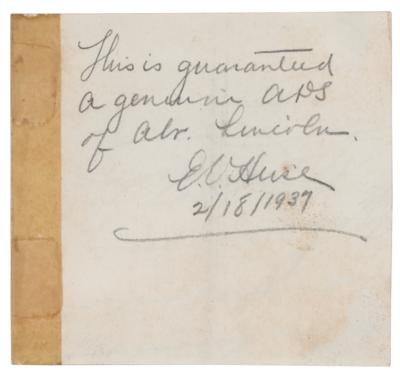 This is guaranteed
a genuine ADS
of Abr. Lincoln.
E.V. Huse
2/18/1937